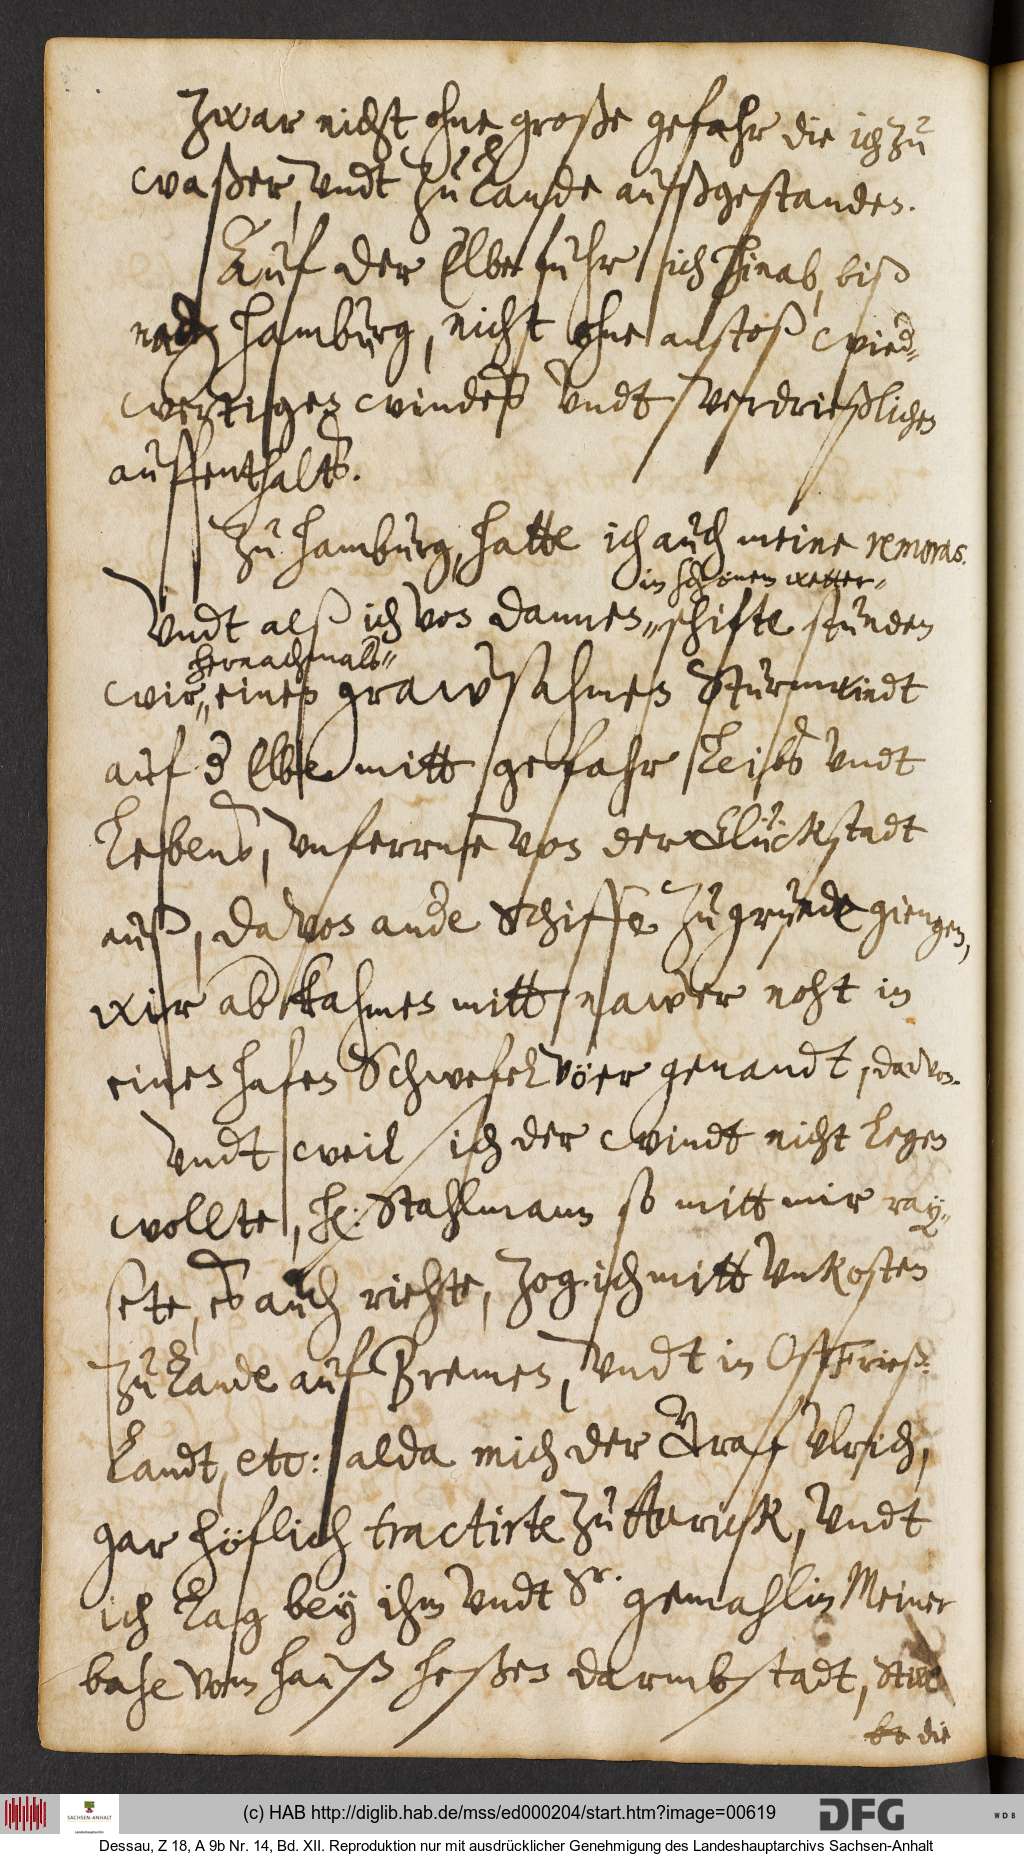 Zwar nicht ohne große gefahr die ich zu
waßer, undt zu Lande außgestanden.
Auf der Elbe fuhr ich hinab, biß
nach hamburg, nicht ohne anstoß wied-
wertigen windeß undt verdrießlichen
auffenthalts.
Zu hamburg, hatte ich auch meine remoras.
in schönen wetter-
Undt alß ich von dannen schifte stunden
hernachmals
wir einen grawsahmen Sturmwindt
auf d Elbe mitt gefahr Leibs undt
Lebens, unferrne von der Glückstadt
auß, davon ande Schiffe zu grunde giengen,
wir ab kahmen mitt nawer noht in
einen hafen Schwefelvöer genandt, davon.
Undt weil sich der windt nicht legen
wollte, he: Stahlmann so mitt mir ray-
sete, es auch riehte, zog ich mitt unkosten
zu Lande auf Bremen, undt in OstFrieß-
Landt, etc: alda mich der Graf Ulrich,
gar höflich tractirte zu Aurick, undt
ich lag bey ihm undt Sr. gemahlin Meiner
base vom hauß heßen darmbstadt,
die
(c) HAB http://diglib.hab.de/mss/ed000204/start.htm?image=00619
SACHSEN-ANHALT
DFG
WDB
Dessau, Z 18, A 9b Nr. 14, Bd. XII. Reproduktion nur mit ausdrücklicher Genehmigung des Landeshauptarchivs Sachsen-Anhalt